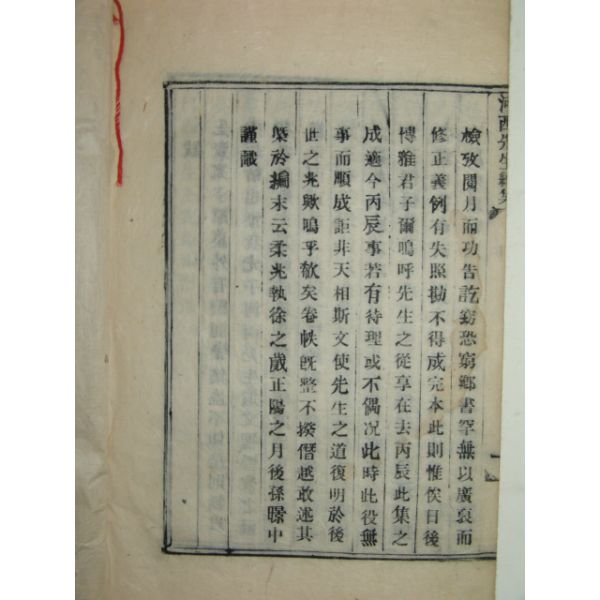 河西先生續集
檢攷閱月而功告訖竊恐窮鄉書罕無以廣裒而
修正義例有失照拗不得成完本此則惟俟日後
博雅君子爾嗚呼先生之從享在去丙辰此集之
成適今丙辰事若有待理或不偶况此時此役無
事而順成詎非天相斯文使先生之道復明於後
世之兆歟嗚乎欷矣卷帙旣整不揆僭越敢述其
槩於編末云柔兆執徐之歲正陽之月後孫暻中
謹識